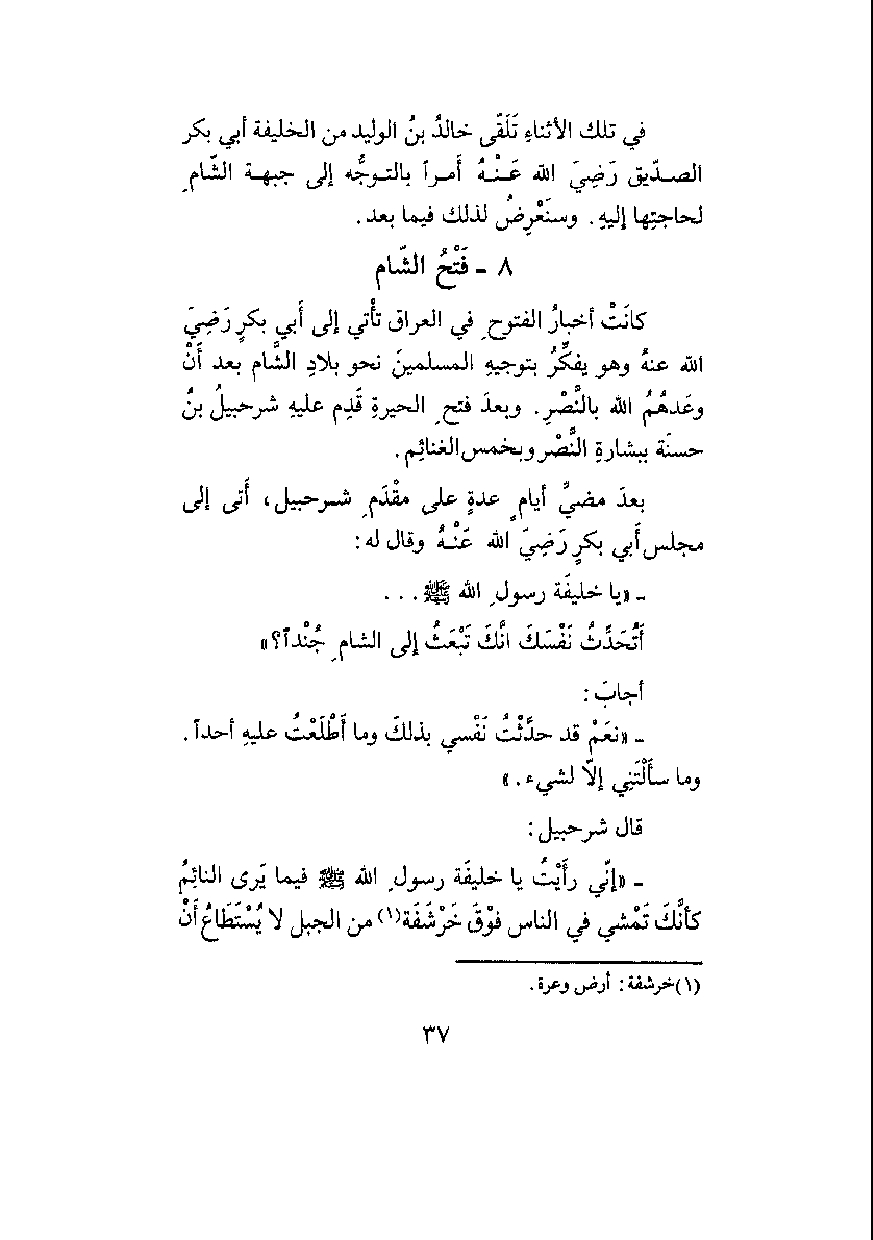 في تلك الأثناءِ تَلَقّى خالدُ بنُ الوليد من الخليفة أبي بكر
الصدّيق رَضِيَ الله عَنْهُ أمراً بالتوجُّه إلى جبهة الشّامِ
لحاجتِها إليهِ. وسنَعْرِضُ لذلك فيما بعد.
٨ - فَتْحُ الشّام
كانَتْ أخبارُ الفتوحِ في العراق تأْتي إلى أَبي بكرٍ رَضِيَ
الله عنهُ وهو يفكِّرُ بتوجيهِ المسلمينَ نحو بلادِ الشَّام بعد أَنْ
وعَدهُمُ الله بالنَّصْرِ. وبعدَ فتحِ الحيرةِ قَدِم عليهِ شرحبيلُ بنُ
حسنَة ببشارةِ النَّصْر وبخمس الغنائِم.
بعدَ مضيِّ أيامٍ عدةٍ على مقْدَمِ شرحبيل، أَتى إلى
مجلس أَبي بكرٍ رَضِيَ الله عَنْهُ وقال له:
- «يا خليفَة رسولِ الله ﷺ ...
أَتُحَدِّثُ نَفْسَكَ انَّكَ تَبْعَثُ إلى الشامِ جُنْداً؟»
أجابَ:
- «نعَمْ قد حدَّثْتُ نَفْسي بذلكَ وما أَطْلَعْتُ عليهِ أحداً.
وما سأَلْتَنِي إلّا لشيء.»
قال شرحبيل:
- «إنّي رأَيْتُ يا خليفَة رسولِ الله ﷺ فيما يَرى النائِمُ
كأنَّكَ تَمْشي في الناس فوْقَ خَرْشَفَة(١) من الجبل لا يُسْتَطَاعُ أَنْ
(١) خرشفة: أرض وعرة.
٣٧